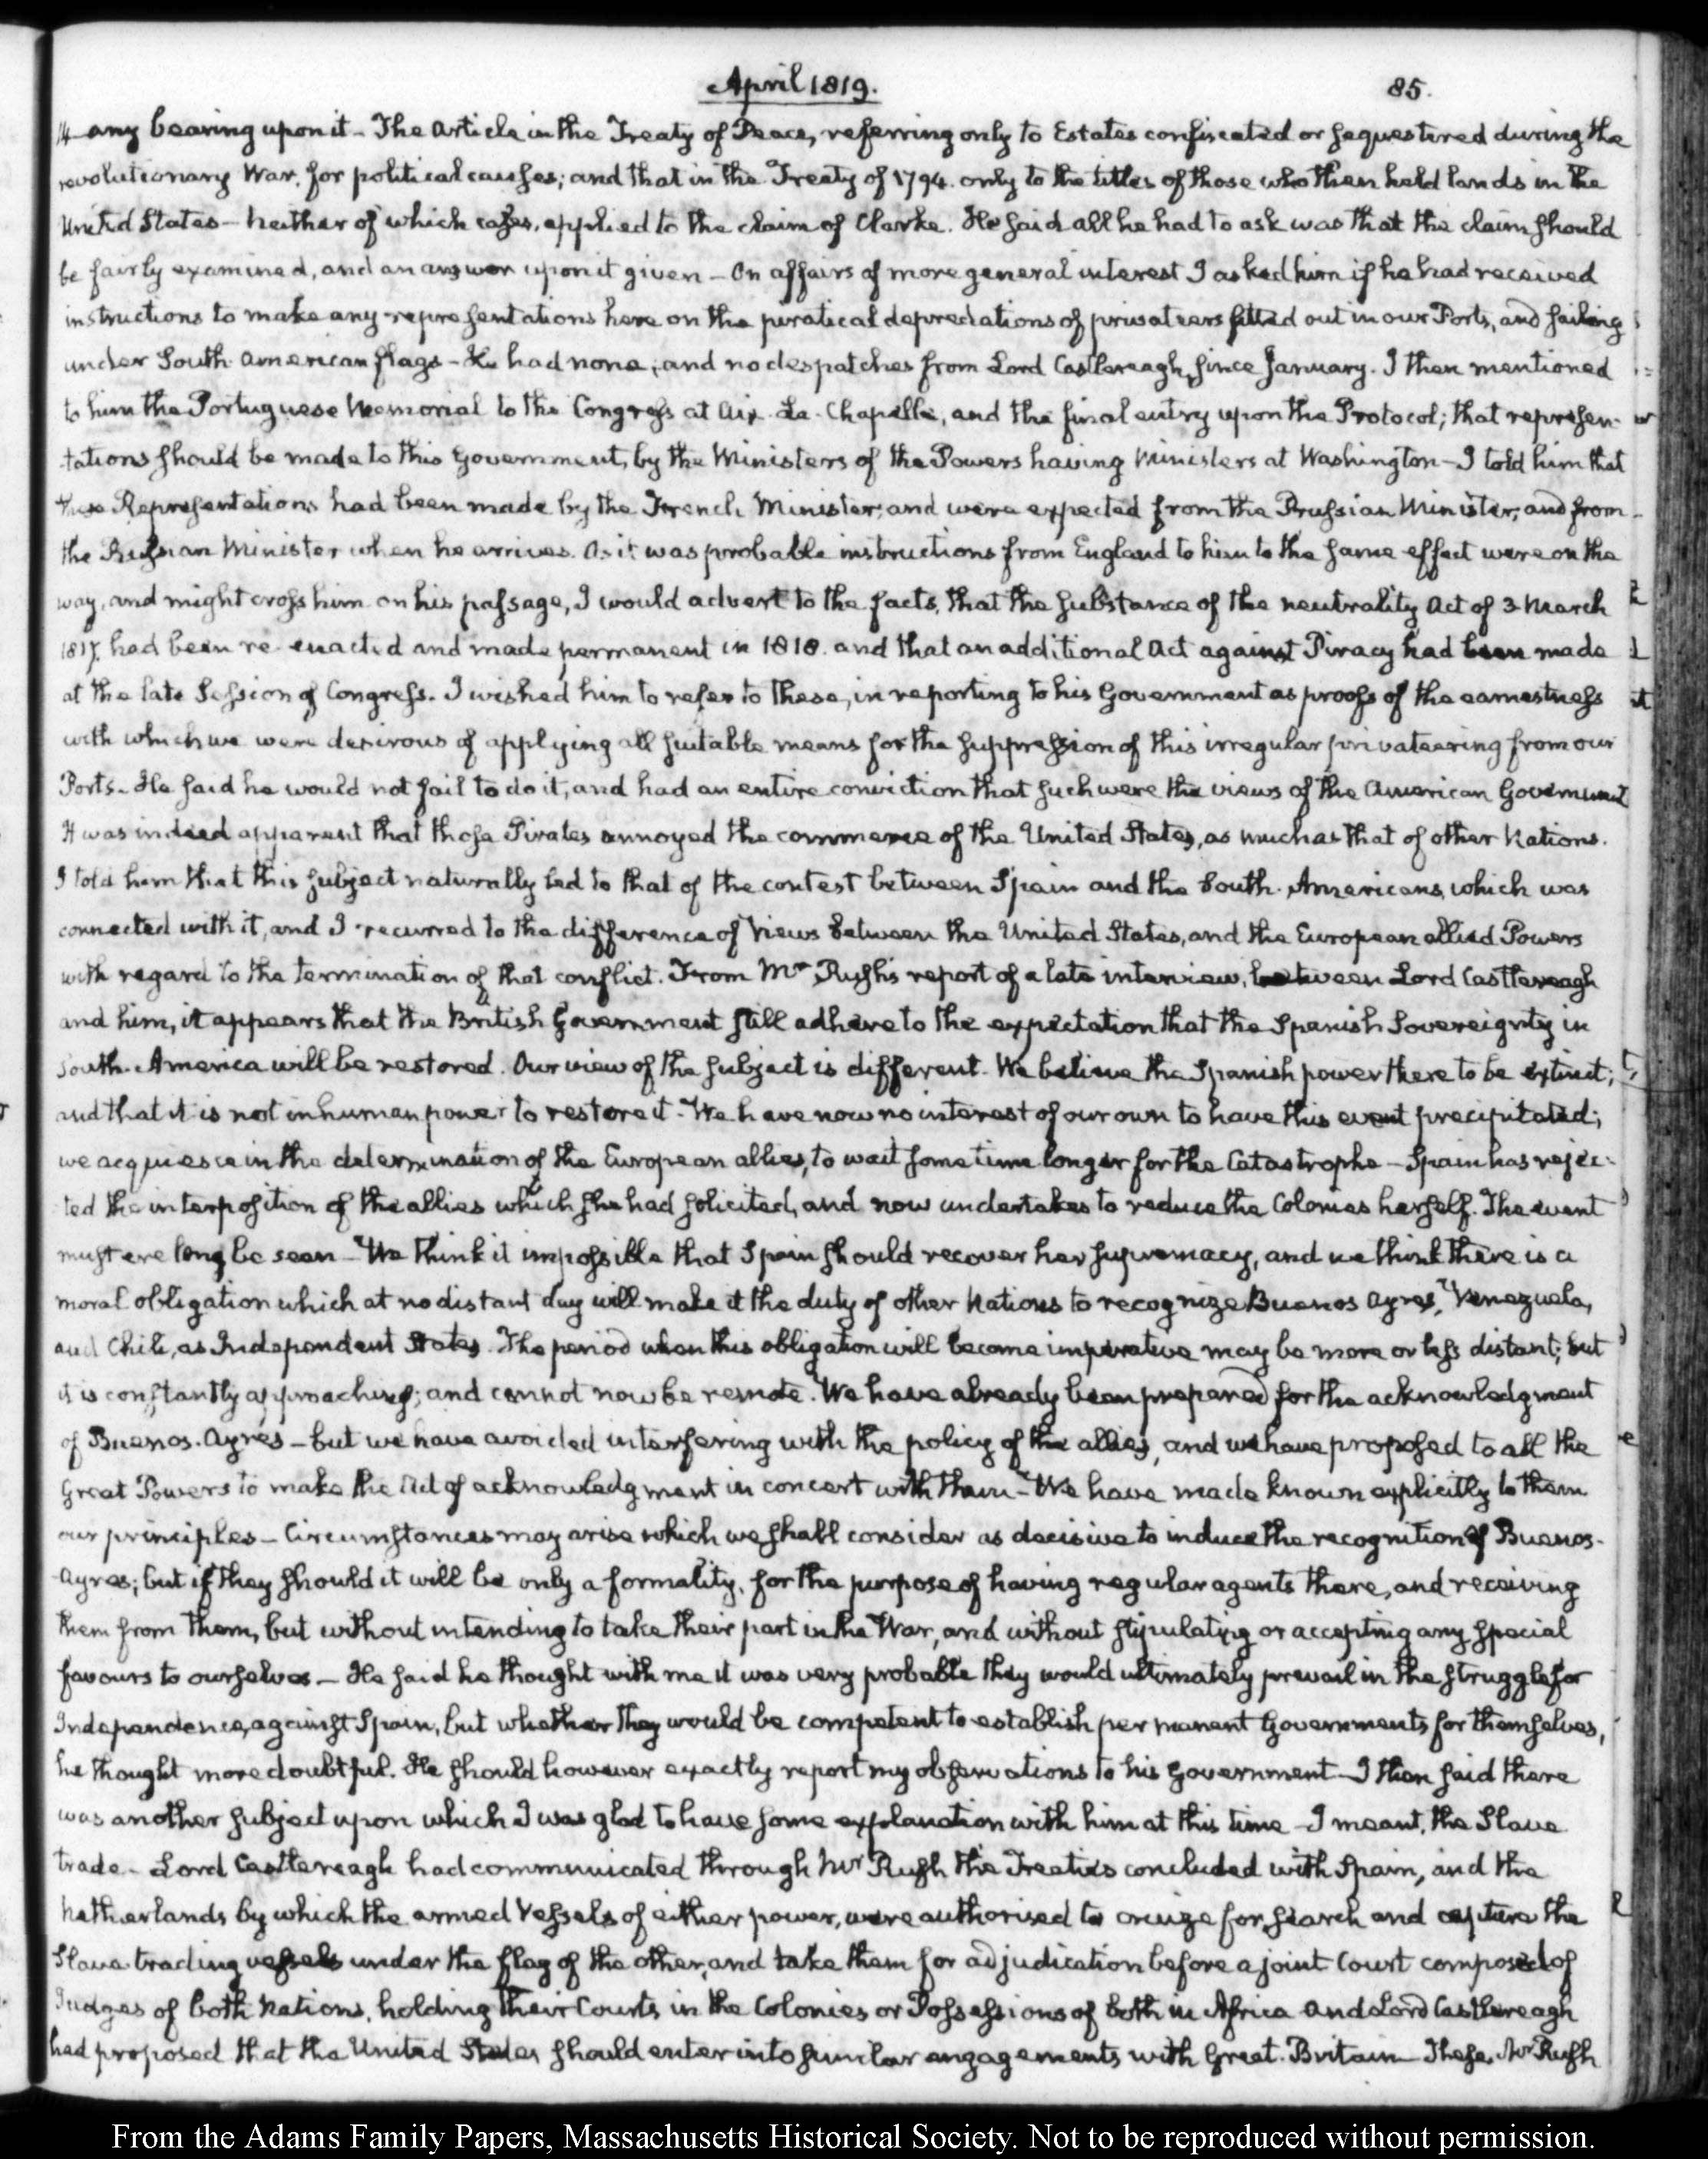 April 1819.
85.
14 any bearing upon it – The Article in the Treaty of Peace, referring only to Estates confiscated or sequestered during the
revolutionary War, for political causes; and that in the Treaty of 1794. only to the titles of those who then held lands in the
United States – neither of which cases, applied to the claim of Clarke. He said all he had to ask was that the claim should
be fairly examined, and an answer upon it given – On affairs of more general interest I asked him if he had received
instructions to make any representations here on the piratical depredations of privateers fitted out in our Ports, and sailing
under South American flags – He had none; and no despatches from Lord Castlereagh, since January. I then mentioned
to him the Portuguese Memorial to the Congress at Aix-La-Chapelle, and the final entry upon the Protocol; that represen-
tations should be made to this Government, by the Ministers of the Powers having Ministers at Washington – I told him that
these Representations had been made by the French Minister, and were expected from the Prussian Minister, and from
the Russian Minister when he arrives. As it was probable instructions from England to him to the same effect were on the
way, and might cross him on his passage, I would advert to the facts, that the substance of the neutrality Act of 3 March
1817. had been re-enacted and made permanent in 1818. and that an additional Act against Piracy had been made
at the late Session of Congress. I wished him to refer to these, in reporting to his Government as proofs of the earnestness
with which we were desirous of applying all suitable means for the suppression of this irregular privateering from our
Ports – He said he would not fail to do it, and had an entire conviction that such were the views of the American Government
It was indeed apparent that those Pirates annoyed the commerce of the United States, as much as that of other Nations.
I told him that this subject naturally led to that of the contest between Spain and the South-Americans, which was
connected with it, and I recurred to the difference of views between the United States, and the European allied Powers
with regard to the termination of that conflict. From Mr Rush's report of a late interview, between Lord Castlereagh
and him, it appears that the British Government still adhere to the expectation that the Spanish Sovereignty in
South-America will be restored. Our view of the subject is different. We believe the Spanish power there to be extinct;
and that it is not in human power to restore it. We have now no interest of our own to have this event precipitated;
we acquiesce in the determination of the European allies, to wait some time longer for the Catastrophe – Spain has rejec-
ted the interposition of the allies which she had solicited, and now undertakes to reduce the Colonies herself. The event
must ere long be seen – We think it impossible that Spain should recover her supremacy, and we think there is a
moral obligation which at no distant day will make it the duty of other Nations to recognize Buenos Ayres, Venezuela,
and Chili, as Independent States. The period when this obligation will become imperative may be more or less distant; but
it is constantly approaching; and cannot now be remote. We have already been prepared for the acknowledgment
of Buenos-Ayres – but we have avoided interfering with the policy of the allies, and we have proposed to all the
Great Powers to make the Act of acknowledgment in concert with them – We have made known explicitly to them
our principles – Circumstances may arise which we shall consider as decisive to induce the recognition of Buenos-
Ayres; but if they should it will be only a formality, for the purpose of having regular agents there, and receiving
them from them, but without intending to take their part in the War, and without stipulating or accepting any special
favours to ourselves – He said he thought with me it was very probable they would ultimately prevail in the struggle for
Independence, against Spain, but whether they would be competent to establish permanent Governments for themselves,
he thought more doubtful. He should however exactly report my observations to his Government – I then said there
was another subject upon which I was glad to have some explanation with him at this time – I meant, the Slave
trade – Lord Castlereagh had communicated through Mr Rush the Treaties concluded with Spain, and the
Netherlands by which the armed Vessels of either power, were authorised to cruize for, search and capture the
Slave-trading vessels under the flag of the other, and take them for adjudication before a joint Court composed of
Judges of both Nations, holding their Courts in the Colonies or Possessions of both in Africa and Lord Castlereagh
had proposed that the United States should enter into similar engagements with Great-Britain – These, Mr Rush
From the Adams Family Papers, Massachusetts Historical Society. Not to be reproduced without permission.